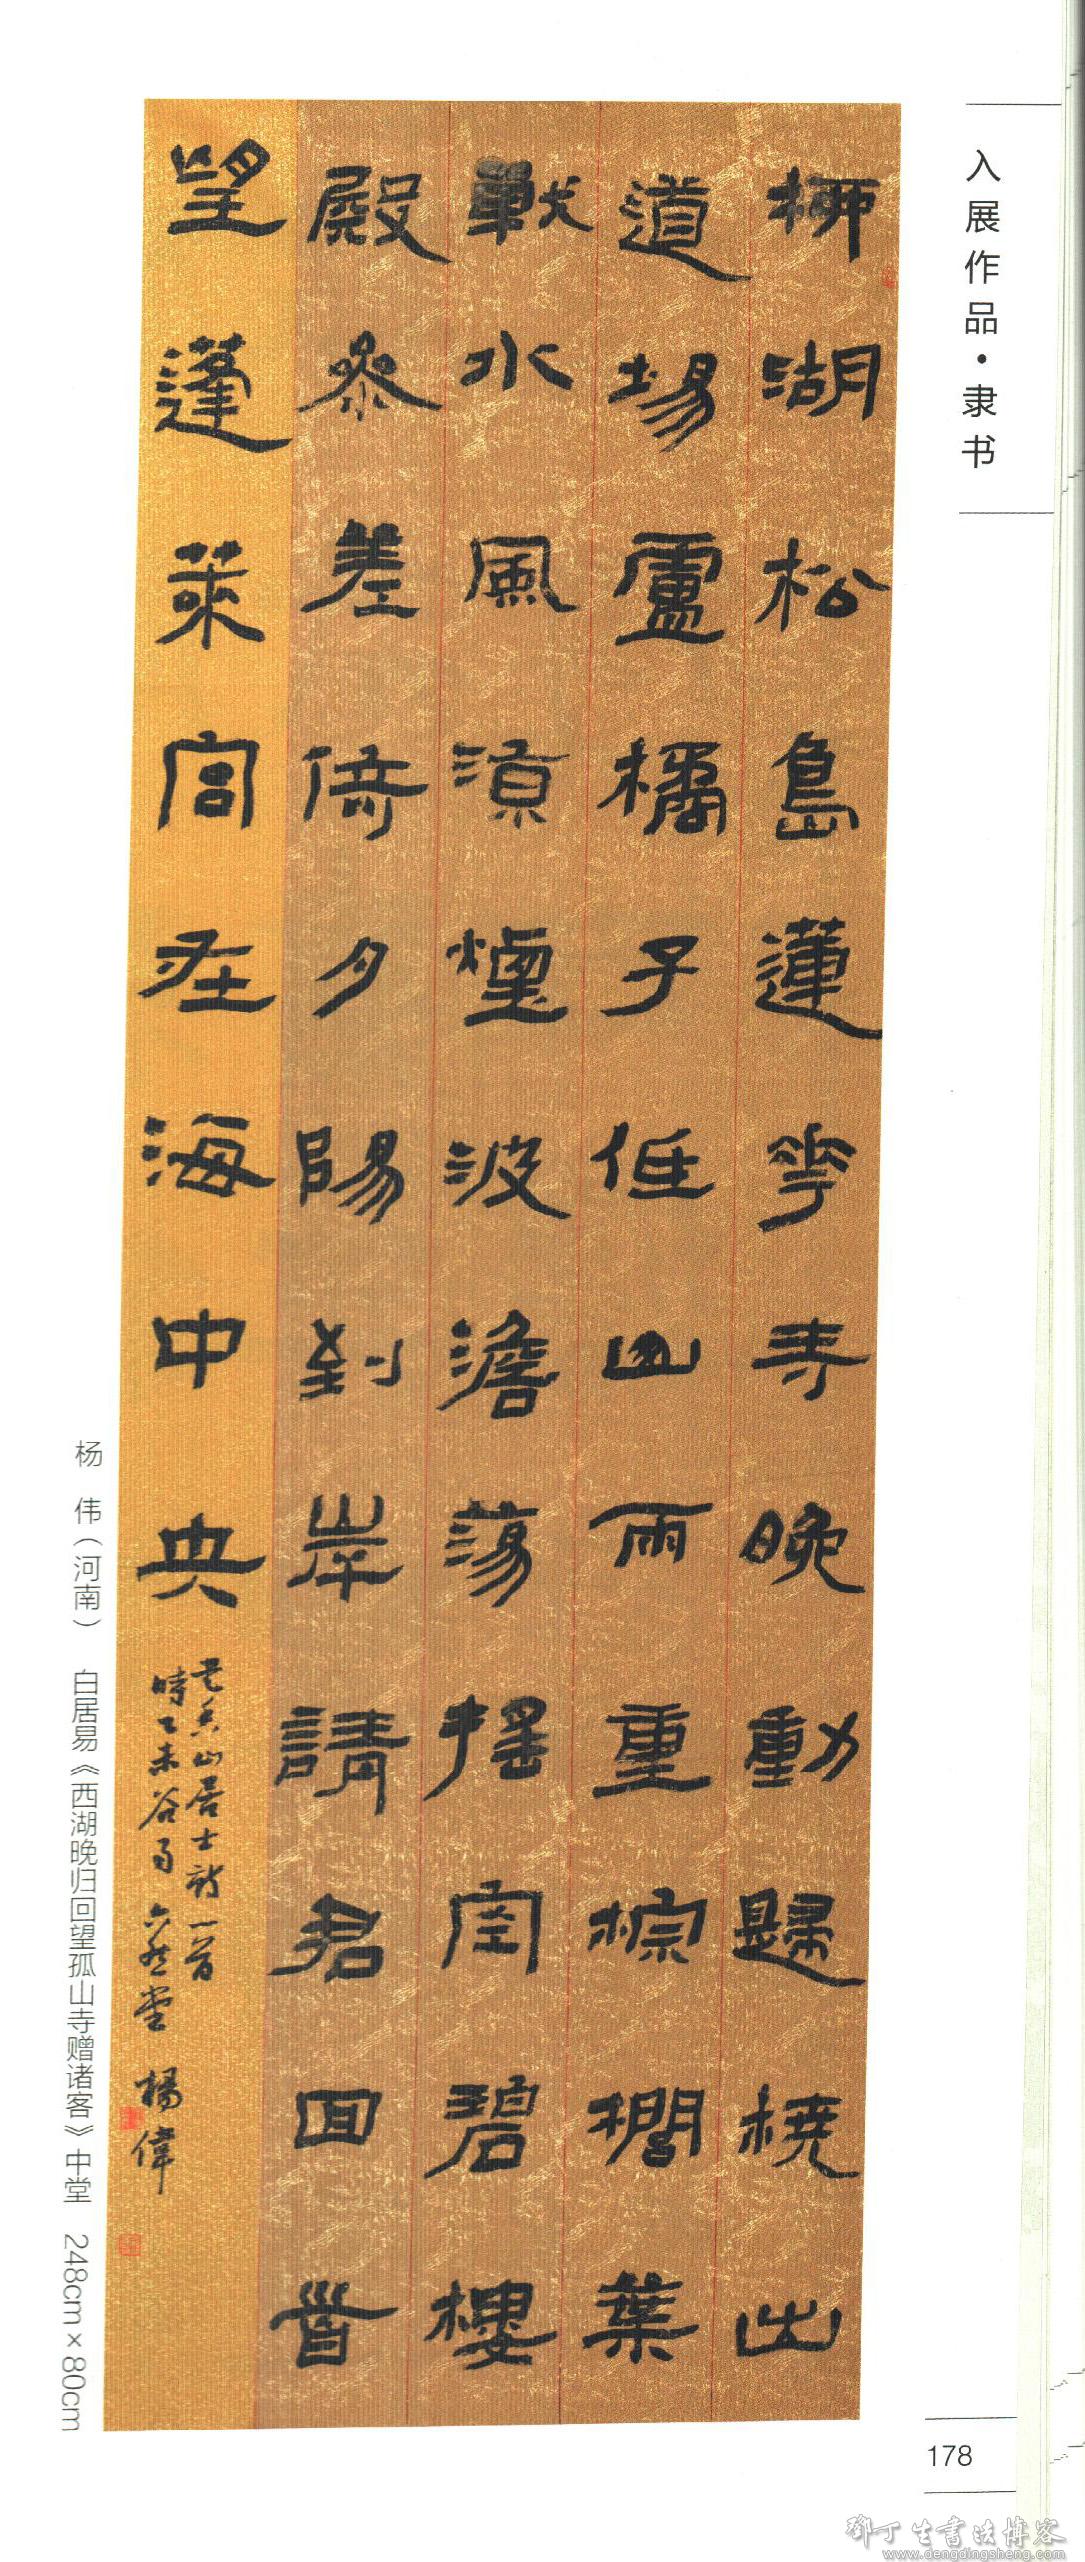 入展作品·隶书
柳湖松島蓮花寺晚動歸橈出
道場盧橘子低山雨重棕櫚葉
戰水風涼煙波澹蕩搖空碧樓
殿參差倚夕陽到岸請君回首
望蓬萊宮在海中央
香山居士詩一首
時乙未谷雨 堂 楊偉
杨 伟（河南） 白居易《西湖晚归回望孤山寺赠诸客》中堂 248cm×80cm
178
鄧丁生書法博客
www.dengdingsheng.com